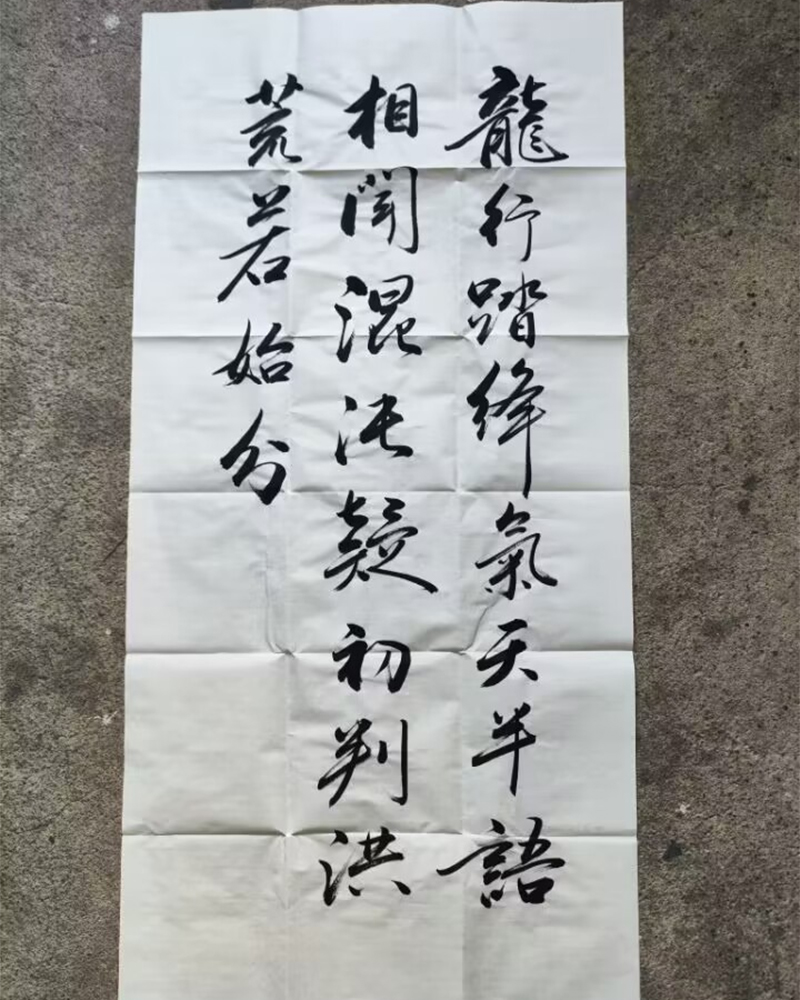 龍行踏絳氣天半語
相聞混沌疑初判洪
荒若始分